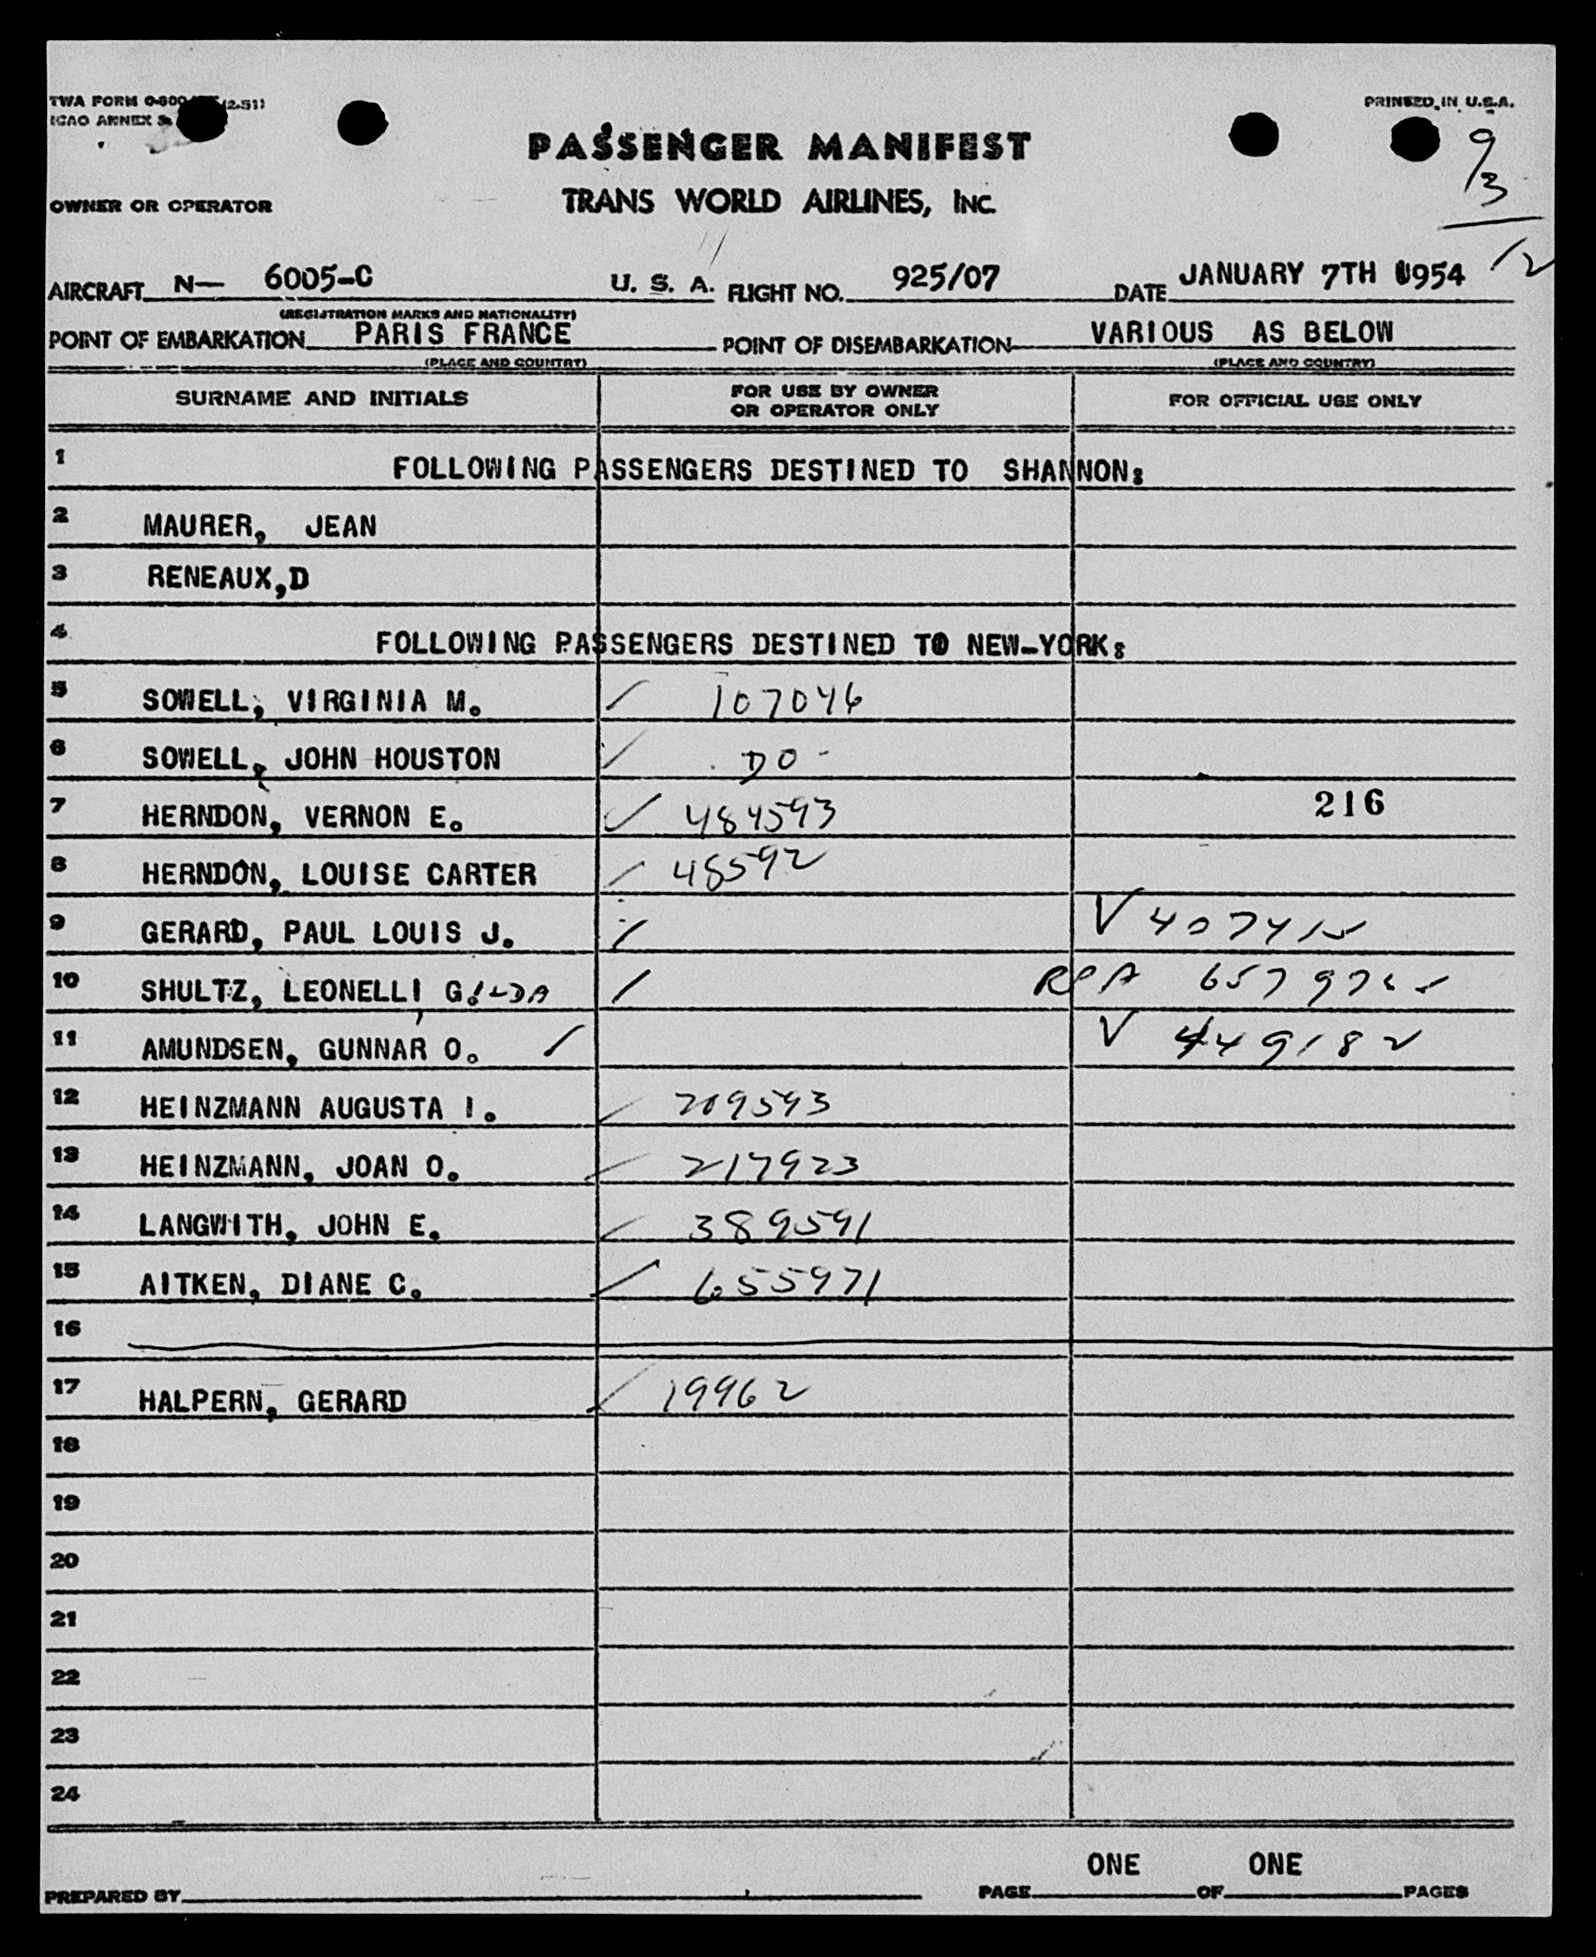 TWA FORM 0-800 (2-51)
PRINTED IN U.S.A.
ICAO ANNEX 9
PASSENGER MANIFEST
9/3
OWNER OR OPERATOR
TRANS WORLD AIRLINES, INC.
12
AIRCRAFT N— 6005-C U. S. A. FLIGHT NO. 925/07 DATE JANUARY 7TH 1954
(REGISTRATION MARKS AND NATIONALITY)
POINT OF EMBARKATION PARIS FRANCE POINT OF DISEMBARKATION VARIOUS AS BELOW
(PLACE AND COUNTRY) (PLACE AND COUNTRY)
SURNAME AND INITIALS FOR USE BY OWNER OR OPERATOR ONLY FOR OFFICIAL USE ONLY
1 FOLLOWING PASSENGERS DESTINED TO SHANNON:
2 MAURER, JEAN
3 RENEAUX,D
4 FOLLOWING PASSENGERS DESTINED TO NEW-YORK:
5 SOWELL, VIRGINIA M. / 107046
6 SOWELL, JOHN HOUSTON / DO -
7 HERNDON, VERNON E. ✓ 484593 216
8 HERNDON, LOUISE CARTER / 48592
9 GERARD, PAUL LOUIS J. / V 407415
10 SHULTZ, LEONELLI GILDA / RPA
11 AMUNDSEN, GUNNAR O. / V 449182
12 HEINZMANN AUGUSTA I. / 209593
13 HEINZMANN, JOAN O. / 217923
14 LANGWITH, JOHN E. / 389591
15 AITKEN, DIANE C. / 655971
16
17 HALPERN, GERARD / 19962
18
19
20
21
22
23
24
PREPARED BY PAGE ONE OF ONE PAGES